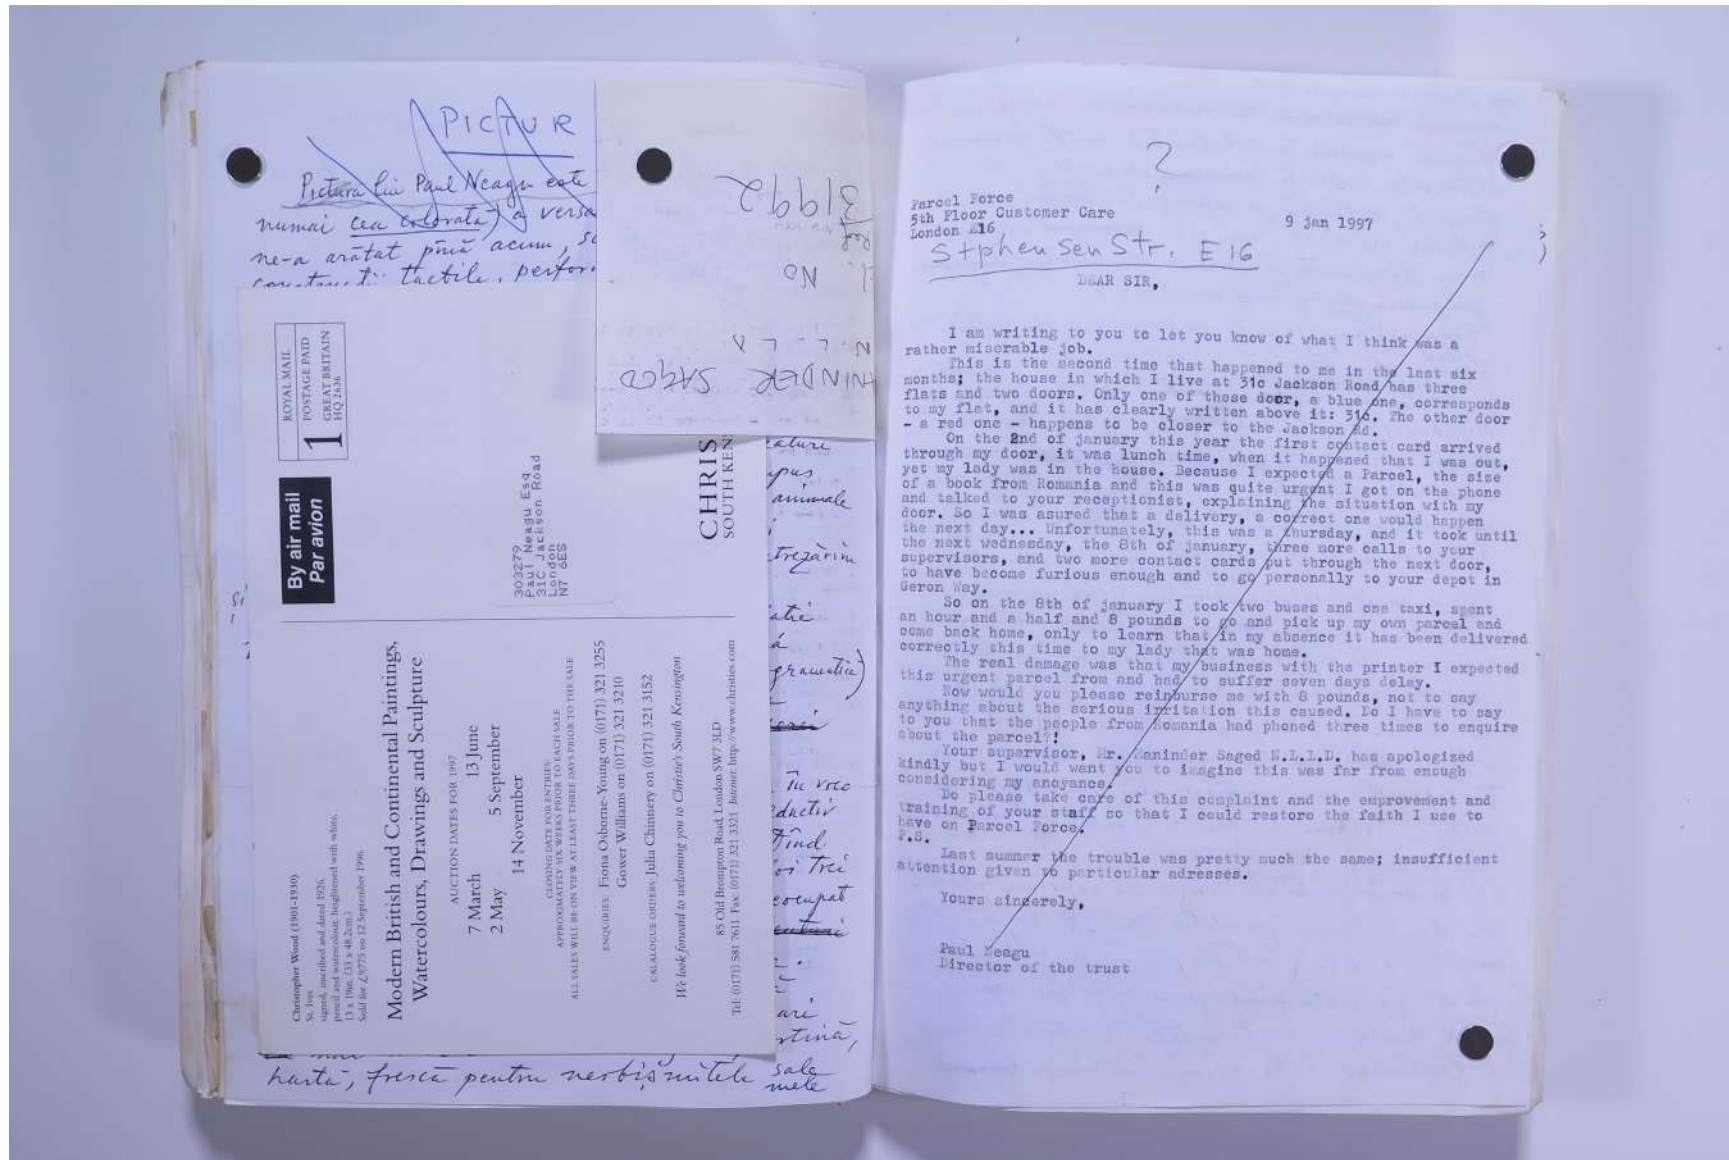 PICTUR
Pictura lui Paul Neagu este
numai cea colorată) a versa
ne-a arătat pînă acum,
tactile, perfor
31992
Ref
No
N. L. L. A
MANINDER SAGED
ROYAL MAIL
POSTAGE PAID
GREAT BRITAIN
HQ 2636
1
By air mail
Par avion
303279
Paul Neagu Esq
31C Jackson Road
London
N7 6ES
CHRIS
SOUTH KEN
Christopher Wood (1901-1930)
St. Ives
signed, inscribed and dated 1926,
pencil and watercolour, heightened with white,
13 x 19in. (33 x 48.2cm.)
Sold for £9,775 on 12 September 1996.
Modern British and Continental Paintings,
Watercolours, Drawings and Sculpture
AUCTION DATES FOR 1997
7 March 13 June
2 May 5 September
14 November
CLOSING DATE FOR ENTRIES:
APPROXIMATELY SIX WEEKS PRIOR TO EACH SALE
ALL SALES WILL BE ON VIEW AT LEAST THREE DAYS PRIOR TO THE SALE
ENQUIRIES: Fiona Osborne-Young on (0171) 321 3255
Gover Williams on (0171) 321 3210
CALALOGUE ORDERS: Julia Chinnery on (0171) 321 3152
We look forward to welcoming you to Christie's South Kensington
85 Old Brompton Road, London SW7 3LD
Tel: (0171) 581 7611 Fax: (0171) 321 3321 Internet: http://www.christies.com
ature
animale
etrezărim
gramatică)
În voco
ductiv
trei
eocupat
hartă, frescă pentru nesbîșnitele sale
mele
?
Parcel Force
5th Floor Customer Care 9 jan 1997
London E16
Stphensen Str. E16
DEAR SIR,
I am writing to you to let you know of what I think was a
rather miserable job.
This is the second time that happened to me in the last six
months; the house in which I live at 31c Jackson Road has three
flats and two doors. Only one of these door, a blue one, corresponds
to my flat, and it has clearly written above it: 31c. The other door
- a red one - happens to be closer to the Jackson Rd.
On the 2nd of january this year the first contact card arrived
through my door, it was lunch time, when it happened that I was out,
yet my lady was in the house. Because I expected a Parcel, the size
of a book from Romania and this was quite urgent I got on the phone
and talked to your receptionist, explaining the situation with my
door. So I was asured that a delivery, a correct one would happen
the next day... Unfortunately, this was a thursday, and it took until
the next wednesday, the 8th of january, three more calls to your
supervisors, and two more contact cards put through the next door,
to have become furious enough and to go personally to your depot in
Geron Way.
So on the 8th of january I took two buses and one taxi, spent
an hour and a half and 8 pounds to go and pick up my own parcel and
come back home, only to learn that in my absence it has been delivered
correctly this time to my lady that was home.
The real damage was that my business with the printer I expected
this urgent parcel from and had to suffer seven days delay.
Now would you please reinburse me with 8 pounds, not to say
anything about the serious irritation this caused. Do I have to say
to you that the people from Romania had phoned three times to enquire
about the parcel?!
Your supervisor, Mr. Maninder Saged N.L.L.D. has apologized
kindly but I would want you to imagine this was far from enough
considering my anoyance.
Do please take care of this complaint and the emprovement and
training of your staff so that I could restore the faith I use to
have on Parcel Force.
P.S.
Last summer the trouble was pretty much the same; insufficient
attention given to particular adresses.
Yours sincerely,
Paul Neagu
Director of the trust